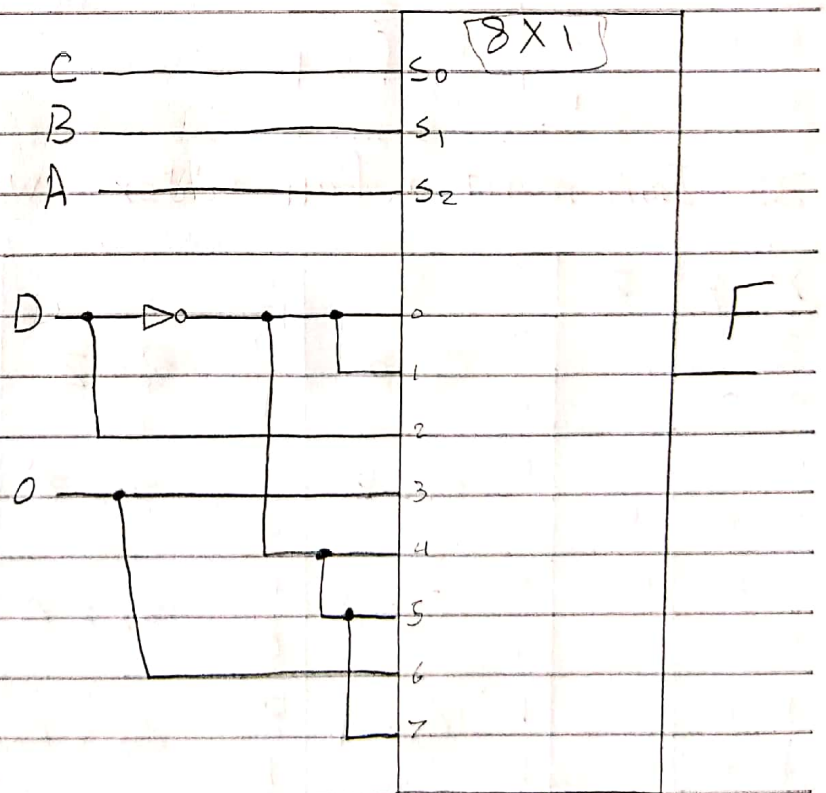 8X1
C S0
B S1
A S2
D 0 F
1
2
0 3
4
5
6
7